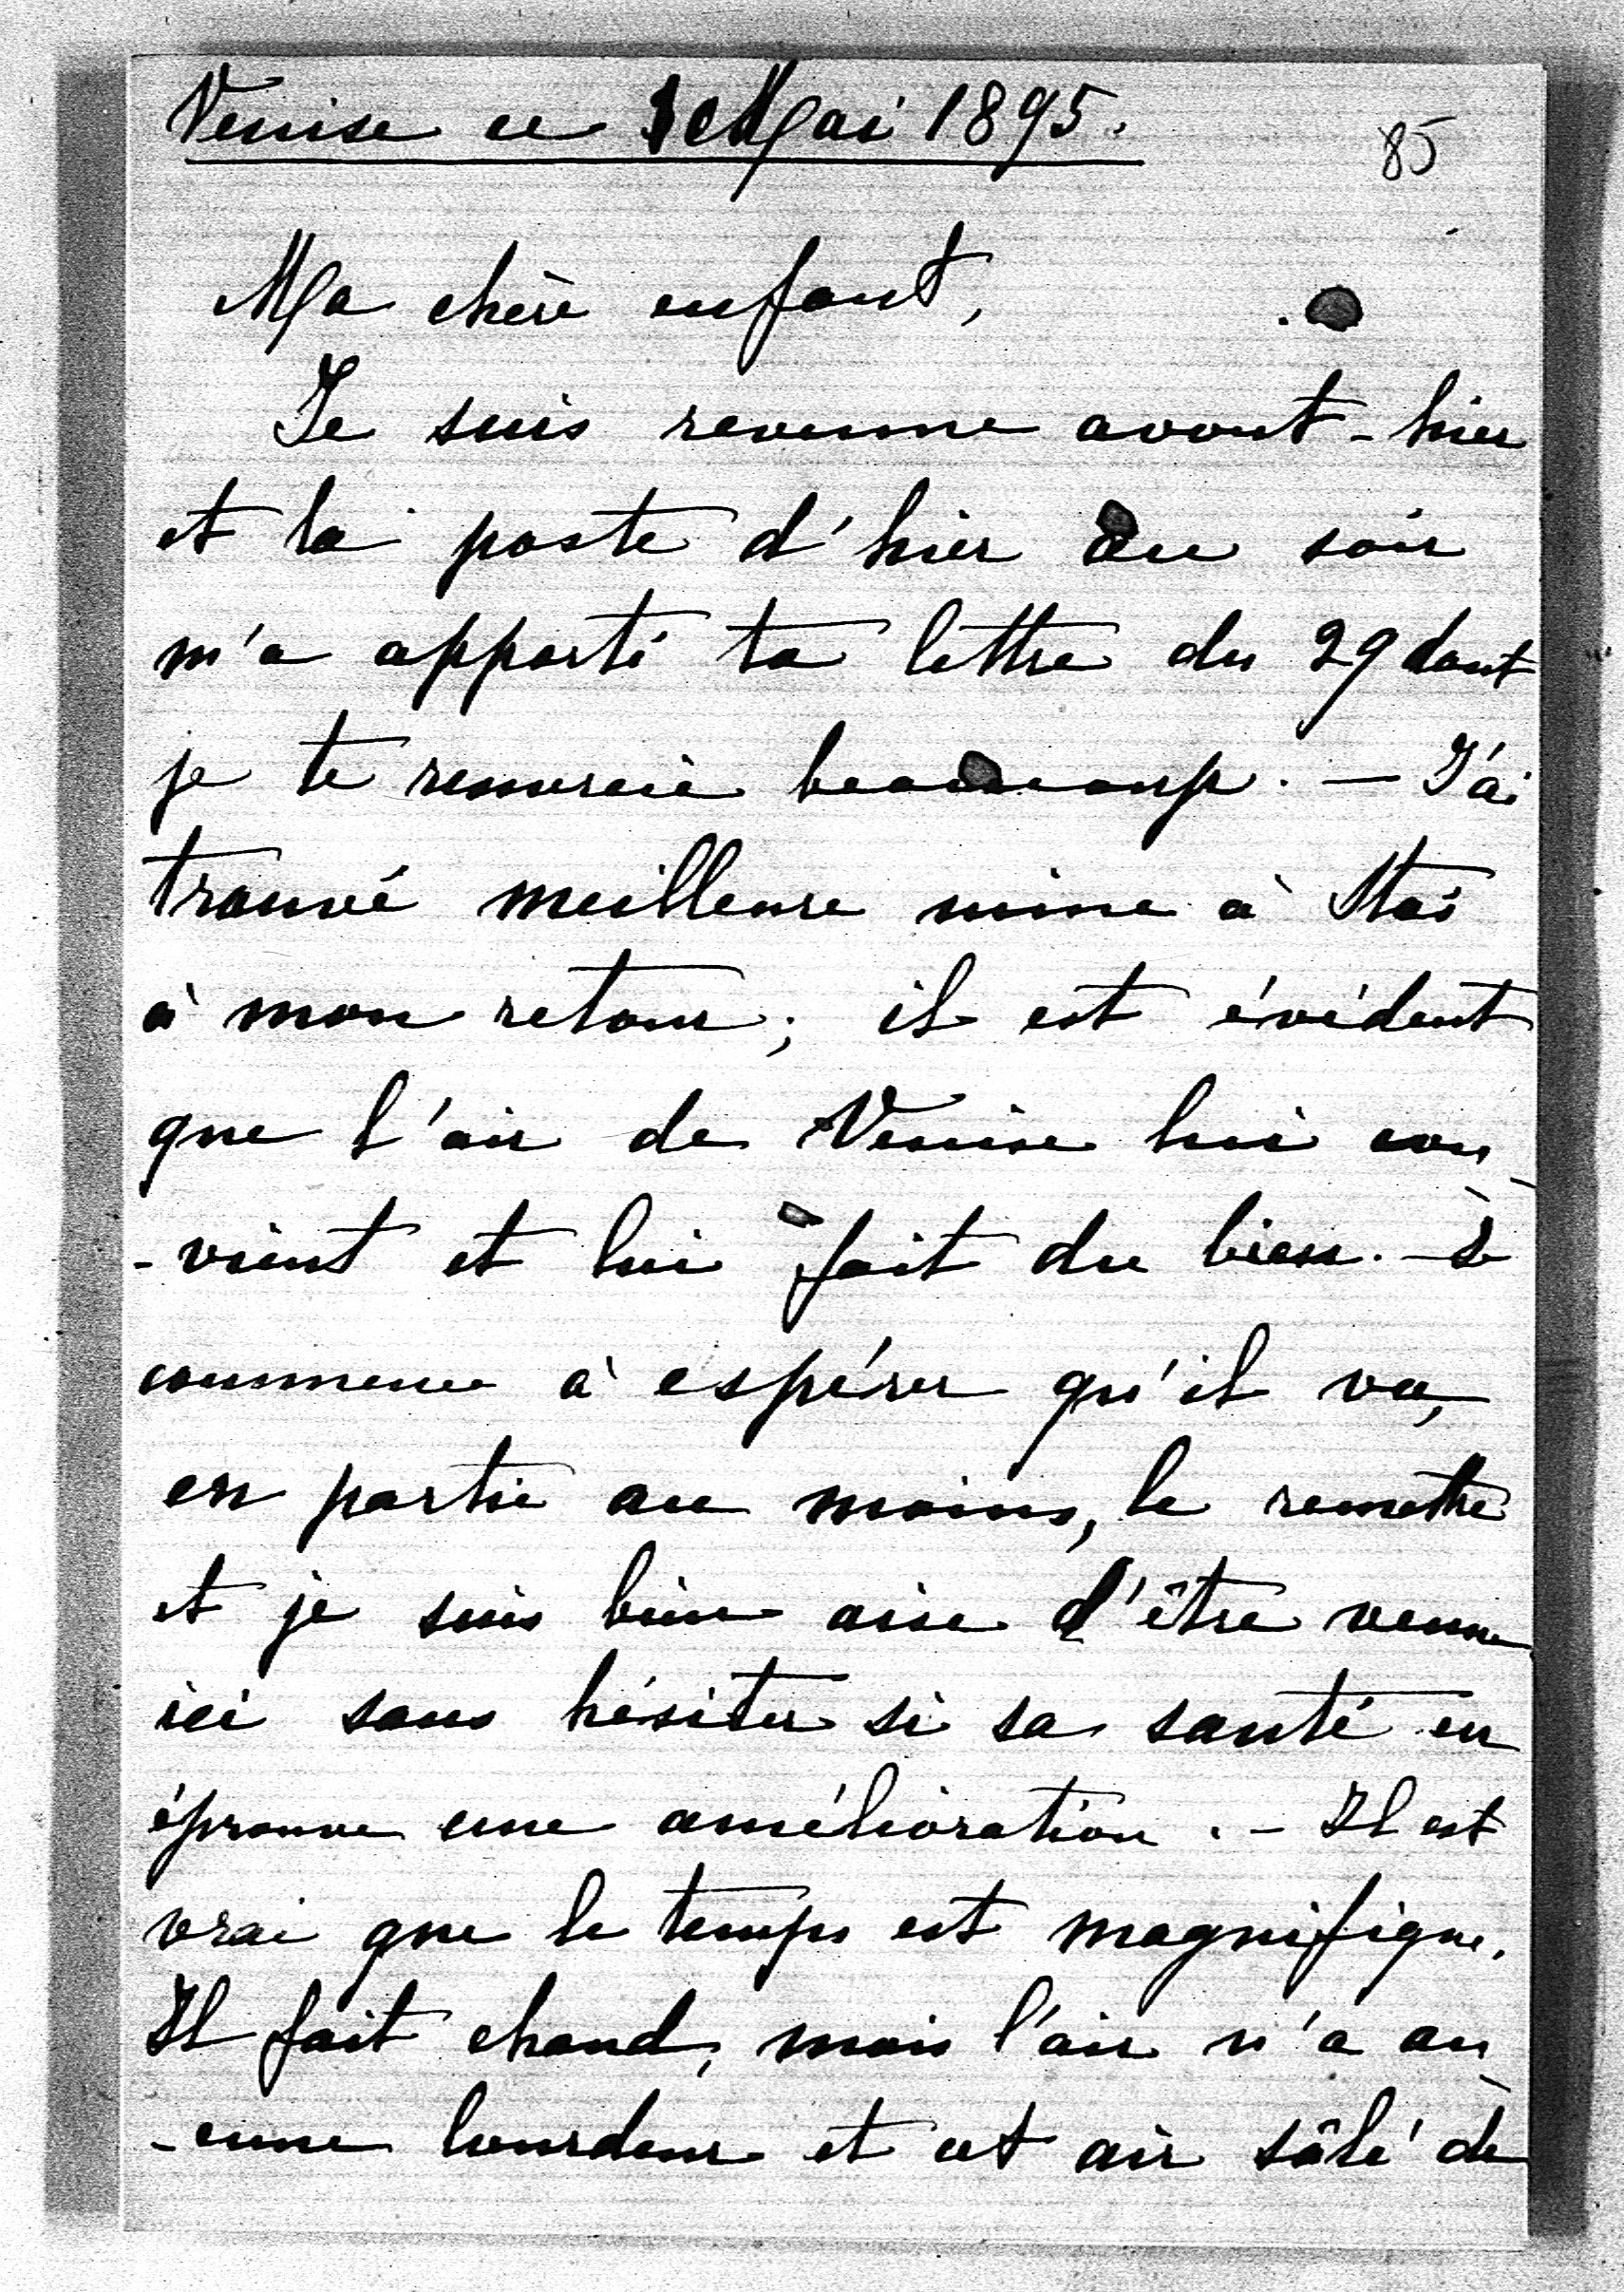 Venise ce Mai 1895.
85
Ma chère enfant,
Je suis revenue avant-hier
et la poste d'hier au soir
m'a apporté ta lettre du 29 dont
je te remercie beaucoup. — J'ai
trouvé meilleure mine à
à mon retour; il est évident
que l'air de Venise lui con-
-vient et lui fait du bien. — Je
commence à espérer qu'il va,
en partie au moins, le remettre
et je suis bien aise d'être venue
ici sans hésiter si sa santé en
éprouve une amélioration. - Il est
vrai que le temps est magnifique.
Il fait chaud, mais l'air n'a au-
-cune lourdeur et cet air sâlé de